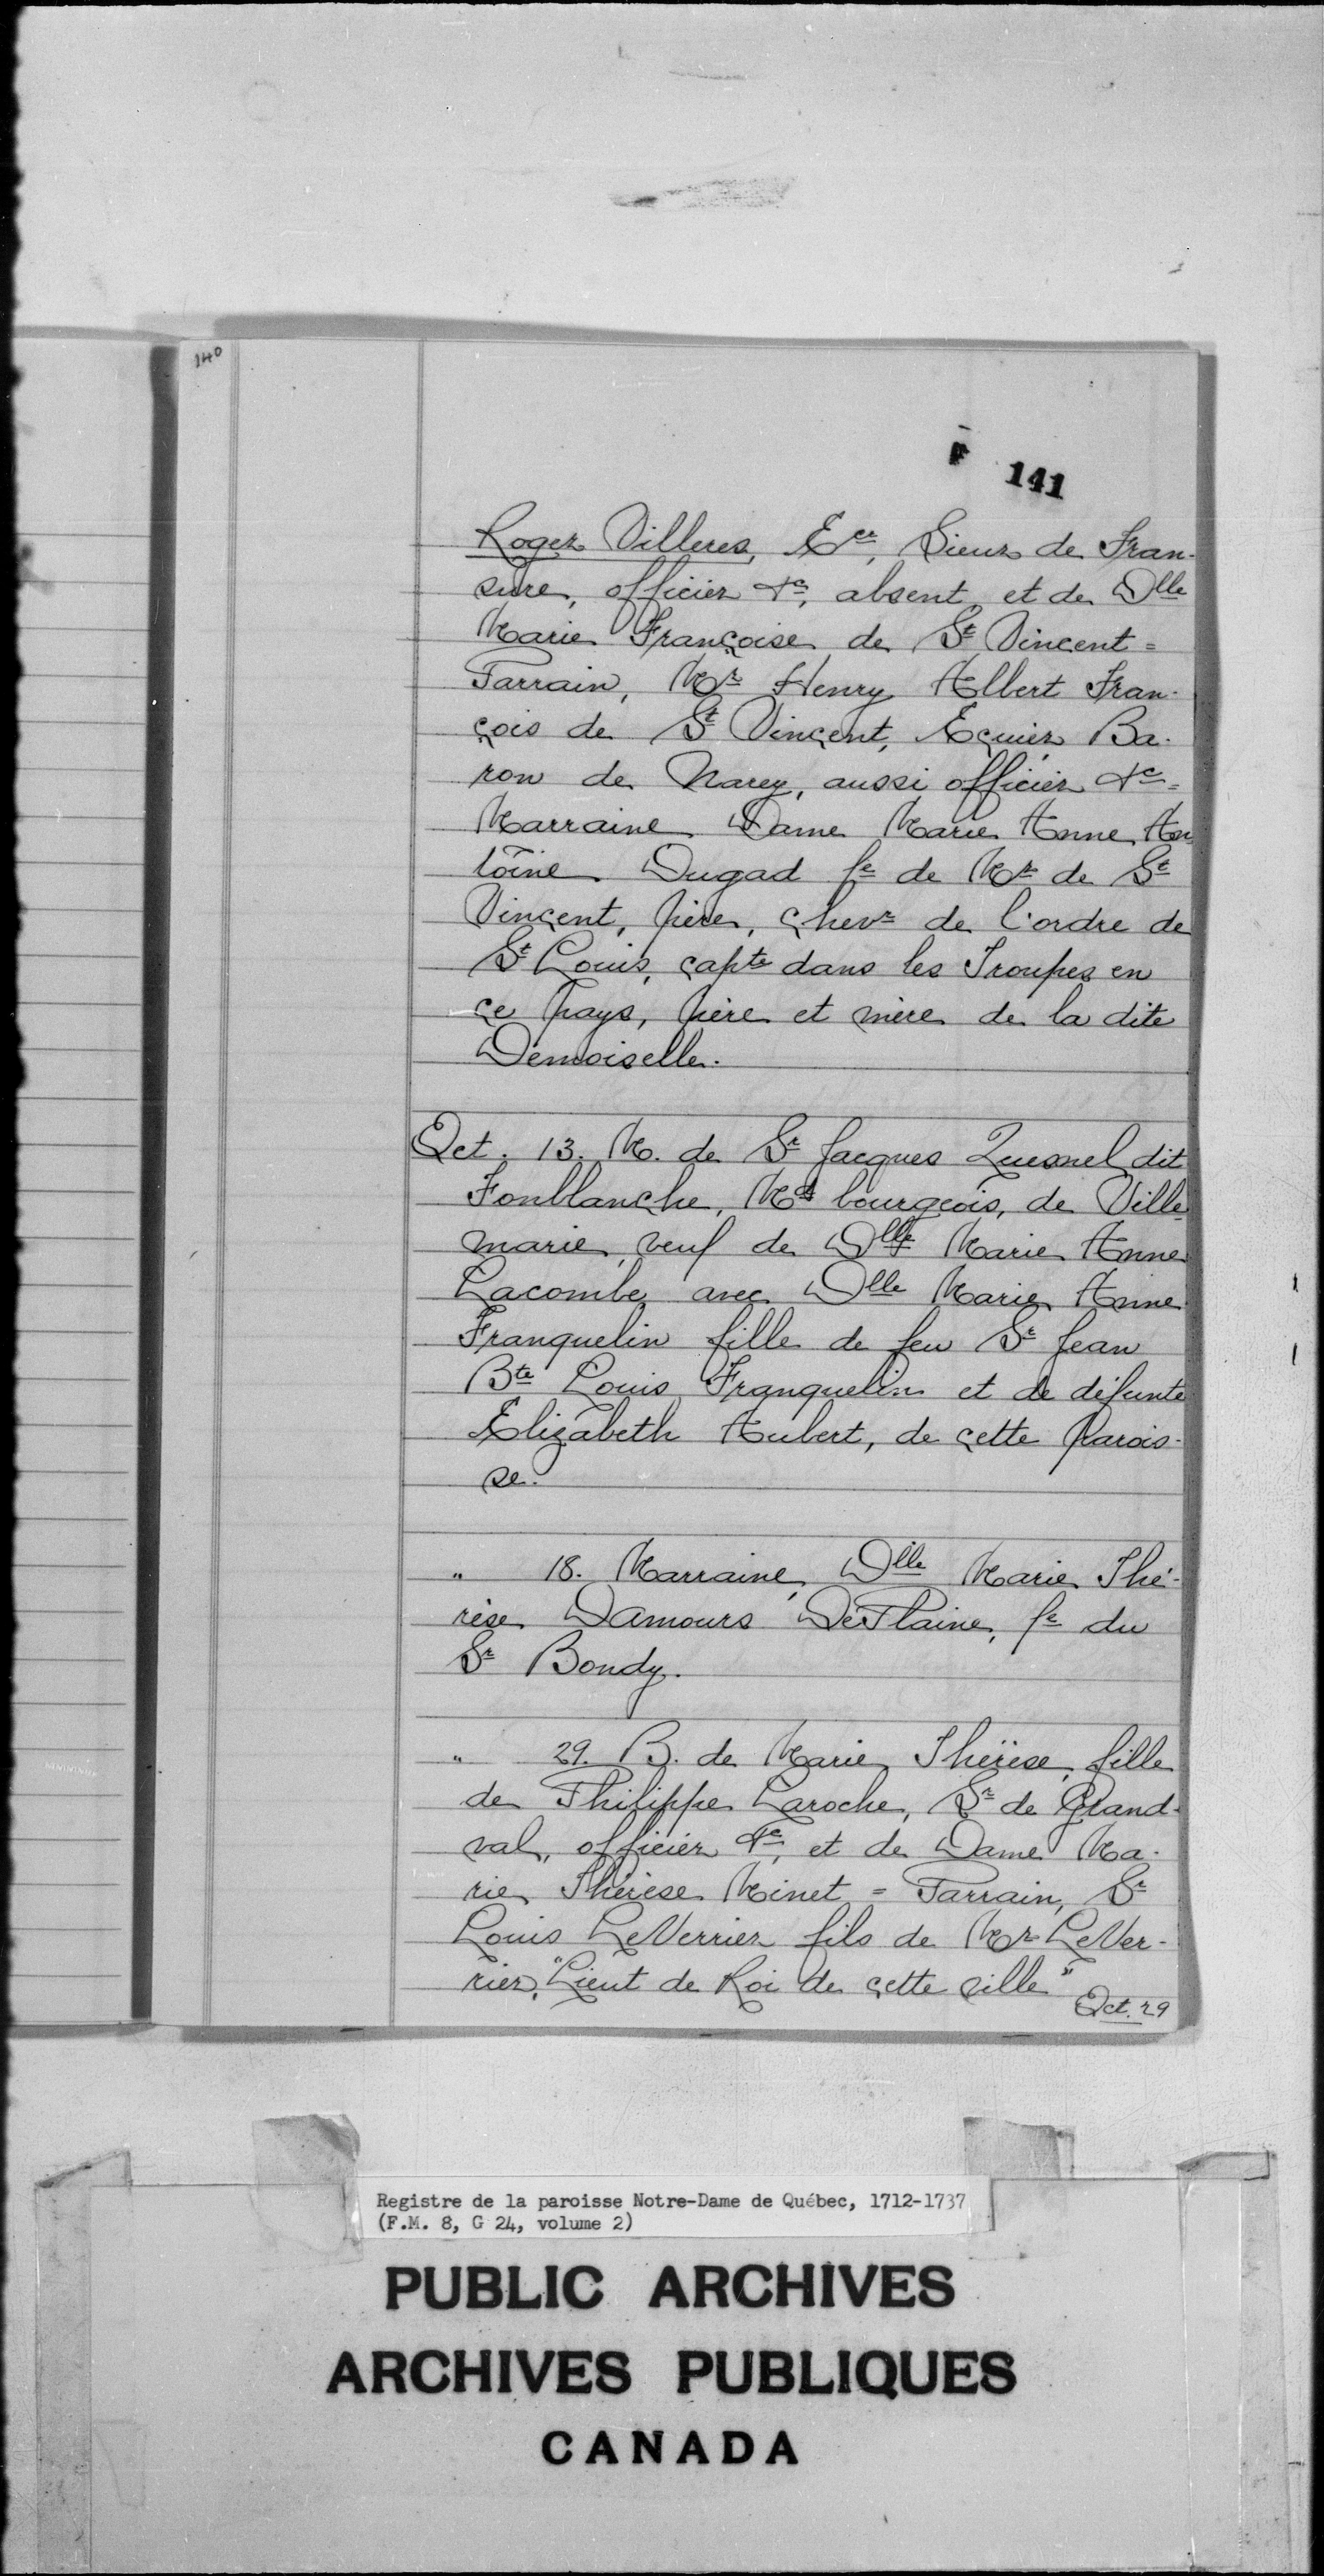 140
F 141
Roger Villeres, Ecr, Sieur de Fran-
sure, officier &c, absent et de Dlle
Marie Françoise de St Vincent =
Parrain, Mr Henry Albert Fran-
çois de St Vincent, Ecuier, Ba-
ron de Narcy, aussi officier &c =
Marraine Dame Marie Anne An-
toine Dugad fe de Mr de St
Vincent, père, chevr de l'ordre de
St Louis, capte dans les Troupes en
ce pays, père et mère de la dite
Demoiselle.
Oct. 13. M. de Sr Jacques Quesnel dit
Fonblanche, Md bourgeois, de Ville-
marie, veuf de Dlle Marie Anne
Lacombe avec Dlle Marie Anne
Franquelin fille de feu Sr Jean
Bte Louis Franquelin et de défunte
Elizabeth Aubert, de cette parois-
se.
" 18. Marraine, Dlle Marie Thé-
rèse Damours DePlaine, fe du
Sr Bondy.
" 29. B. de Marie Thérèse, fille
de Philippe Laroche, Sr de Grand-
val, officier &c, et de Dame Ma-
rie Thérèse Minet = Parrain, Sr
Louis LeVerrier fils de Mr LeVer-
rier, "Lieut de Roi de cette ville"
Oct. 29
Registre de la paroisse Notre-Dame de Québec, 1712-1737
(F.M. 8, G 24, volume 2)
PUBLIC ARCHIVES
ARCHIVES PUBLIQUES
CANADA